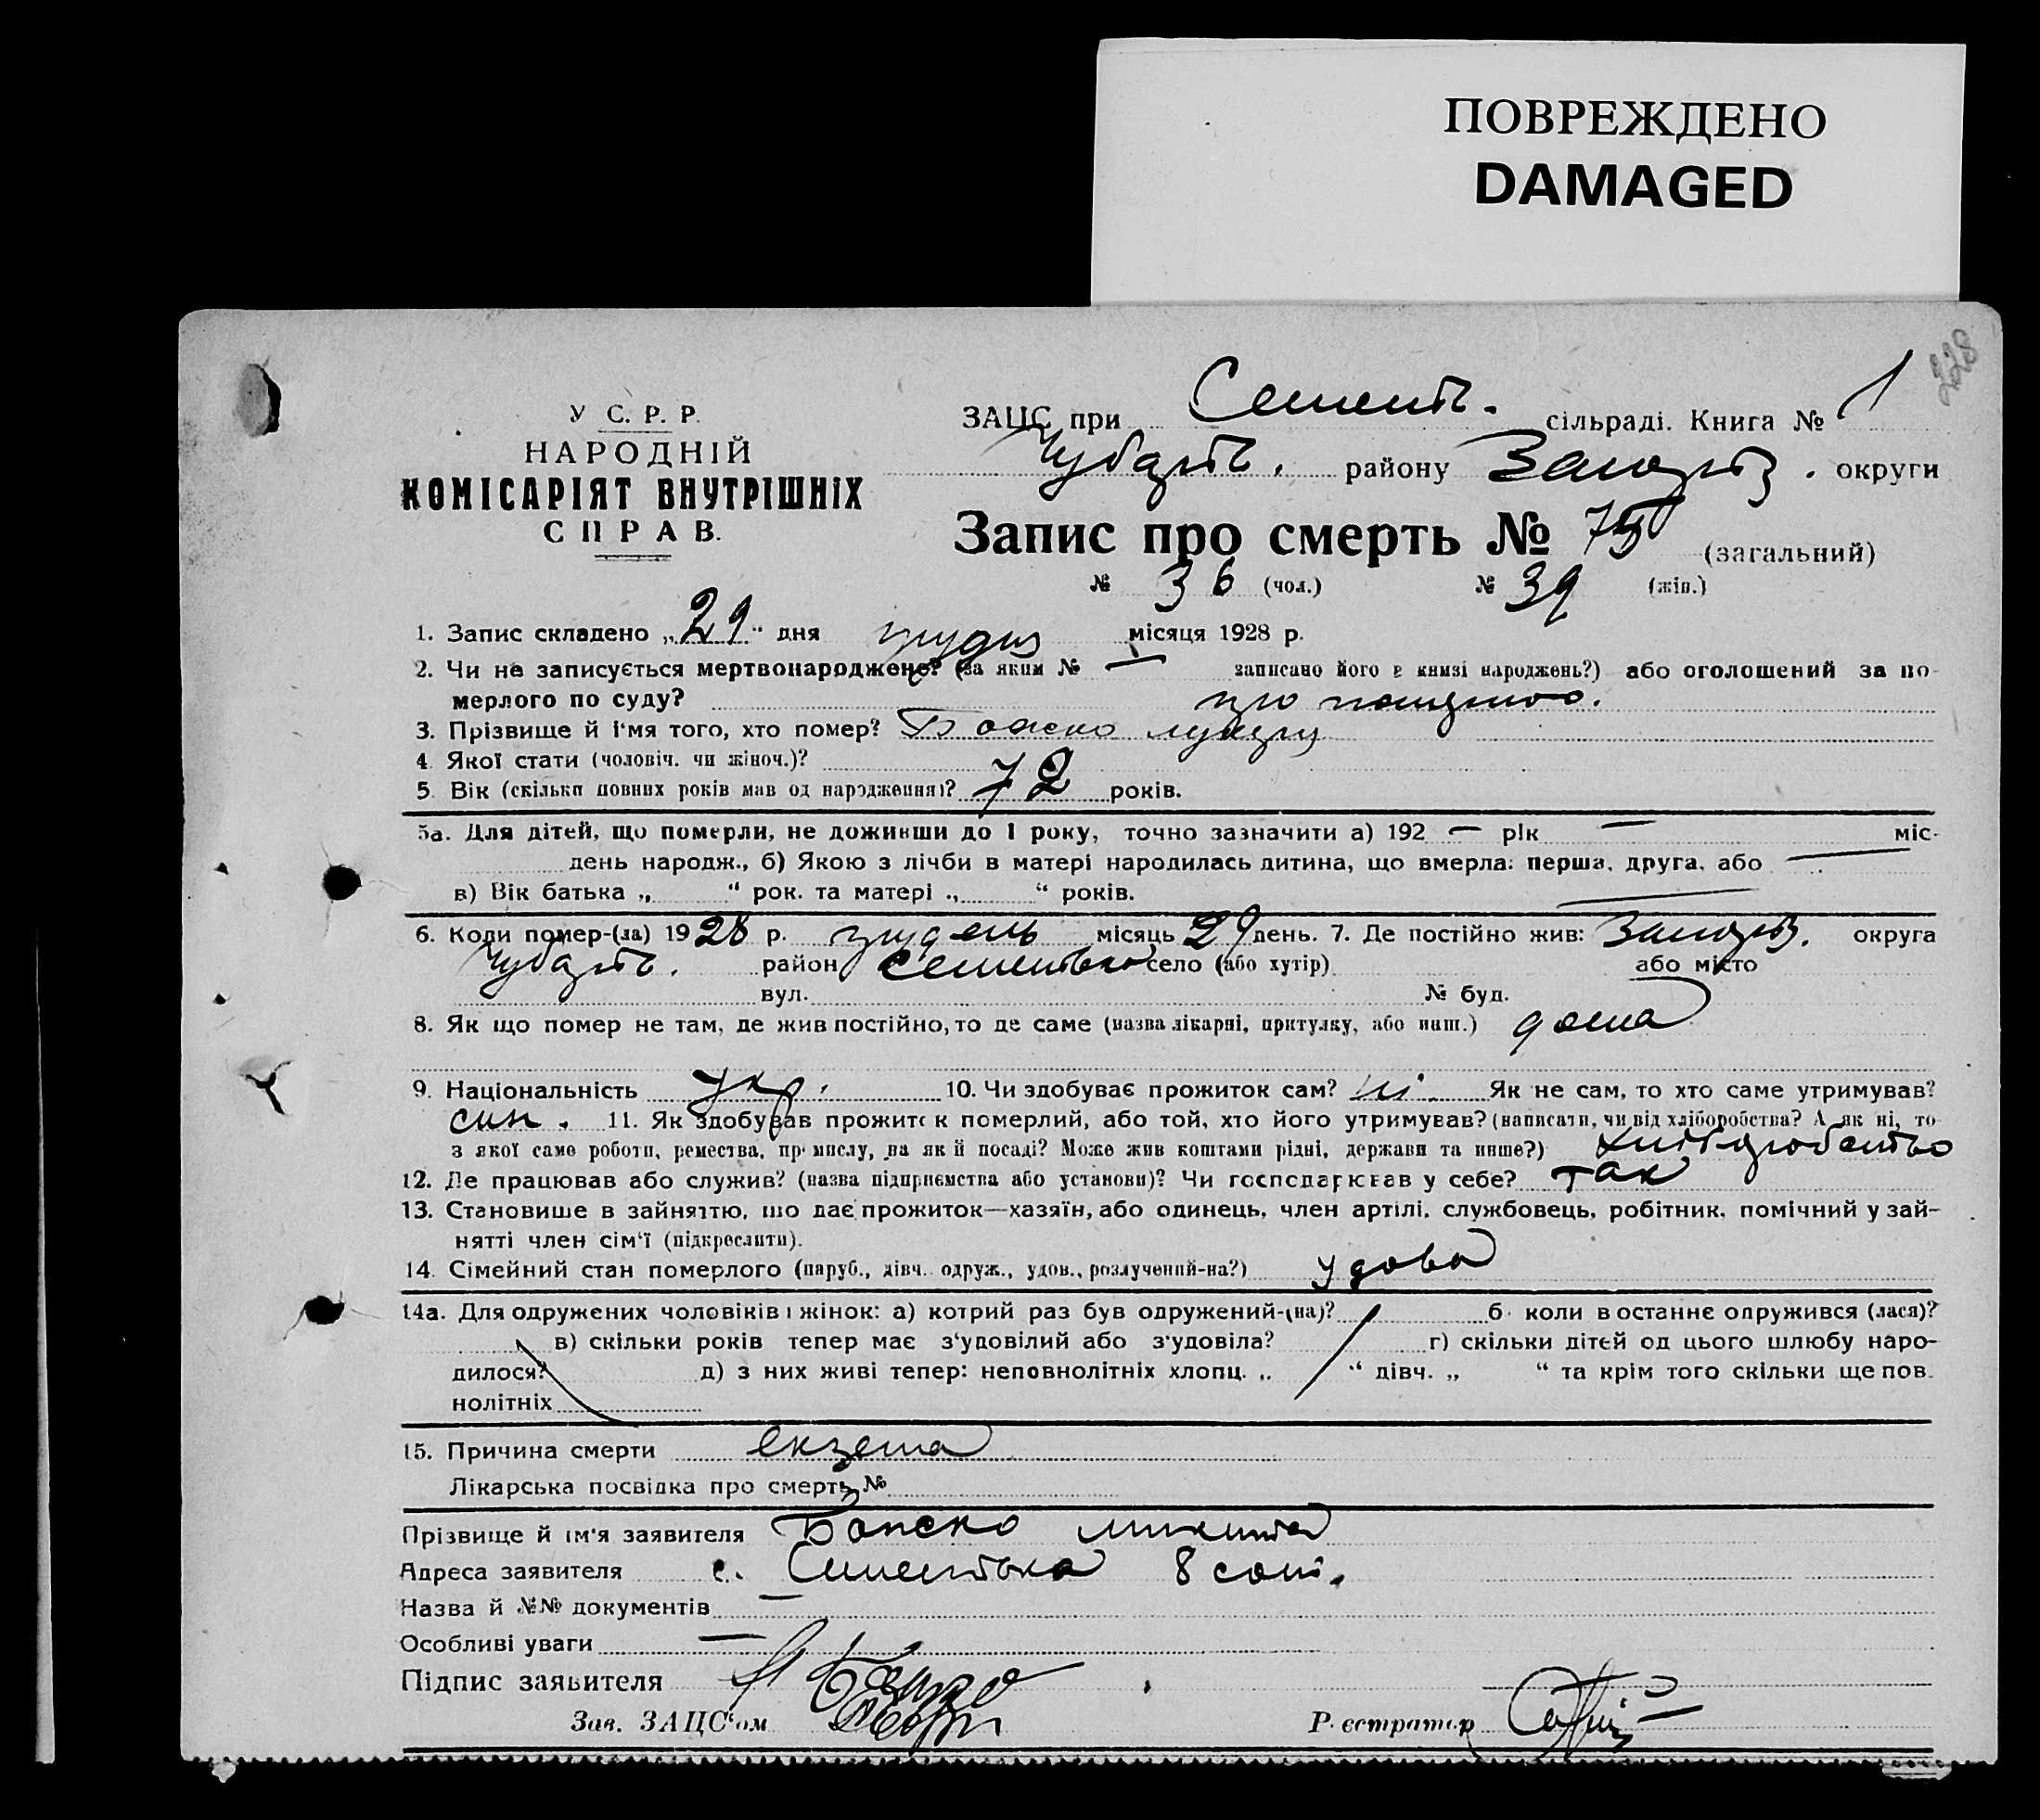 ПОВРЕЖДЕНО
DAMAGED
228
У С. Р. Р.
НАРОДНІЙ
КОМІСАРІЯТ ВНУТРІШНІХ
СПРАВ.
ЗАЦС при Семент. сільраді. Книга № 1
Чубарів. району Запоріз. округи
Запис про смерть № 75 (загальний)
№ 36 (чол.) № 39 (жін.)
1. Запис складено „29“ дня грудня місяця 1928 р.
2. Чи не записується мертвонароджене? (за яким № — записано його в книзі народжень?) або оголошений за по-
мерлого по суду?
3. Прізвище й і'мя того, хто помер? Божко
4. Якої стати (чоловіч. чи жіноч.)?
5. Вік (скільки повних років мав од народження)? 72 років.
5а. Для дітей, що померли, не доживши до 1 року, точно зазначити а) 192 — рік — міс-
день народж., б) Якою з лічби в матері народилась дитина, що вмерла: перша, друга, або —
в) Вік батька „ “ рок. та матері „ “ років.
6. Коли помер-(ла) 1928 р. грудень місяць 29 день. 7. Де постійно жив: Запоріз. округа
Чубарів. район село (або хутір) або місто
вул. № буд.
8. Як що помер не там, де жив постійно, то де саме (назва лікарні, притулку, або инш.) дома
9. Національність укр. 10. Чи здобуває прожиток сам? ні. Як не сам, то хто саме утримував?
син. 11. Як здобував прожиток померлий, або той, хто його утримував? (написати, чи від хліборобства? А як ні, то
з якої саме роботи, ремества, промислу, на як й посаді? Може жив коштами рідні, держави та инше?) хліборобство
12. Де працював або служив? (назва підприємства або установи)? Чи господарював у себе? так
13. Становище в зайняттю, що дає прожиток—хазяїн, або одинець, член артілі, службовець, робітник, помічний у зай-
нятті член сім'ї (підкреслити).
14. Сімейний стан померлого (паруб., дівч. одруж., удов., розлучений-на?) удова
14а. Для одружених чоловіків і жінок: а) котрий раз був одружений-(на)? б. коли в останнє одружився (лася)?
в) скільки років тепер має з'удовілий або з'удовіла? г) скільки дітей од цього шлюбу наро-
дилося? д) з них живі тепер: неповнолітніх хлопц. „ “ дівч. „ “ та крім того скільки ще пов-
нолітніх
15. Причина смерти екзема
Лікарська посвідка про смерть №
Прізвище й ім'я заявителя Божко Микита
Адреса заявителя с. 8 сот.
Назва й №№ документів —
Особливі уваги —
Підпис заявителя
Зав. ЗАЦС'ом
Реєстратор